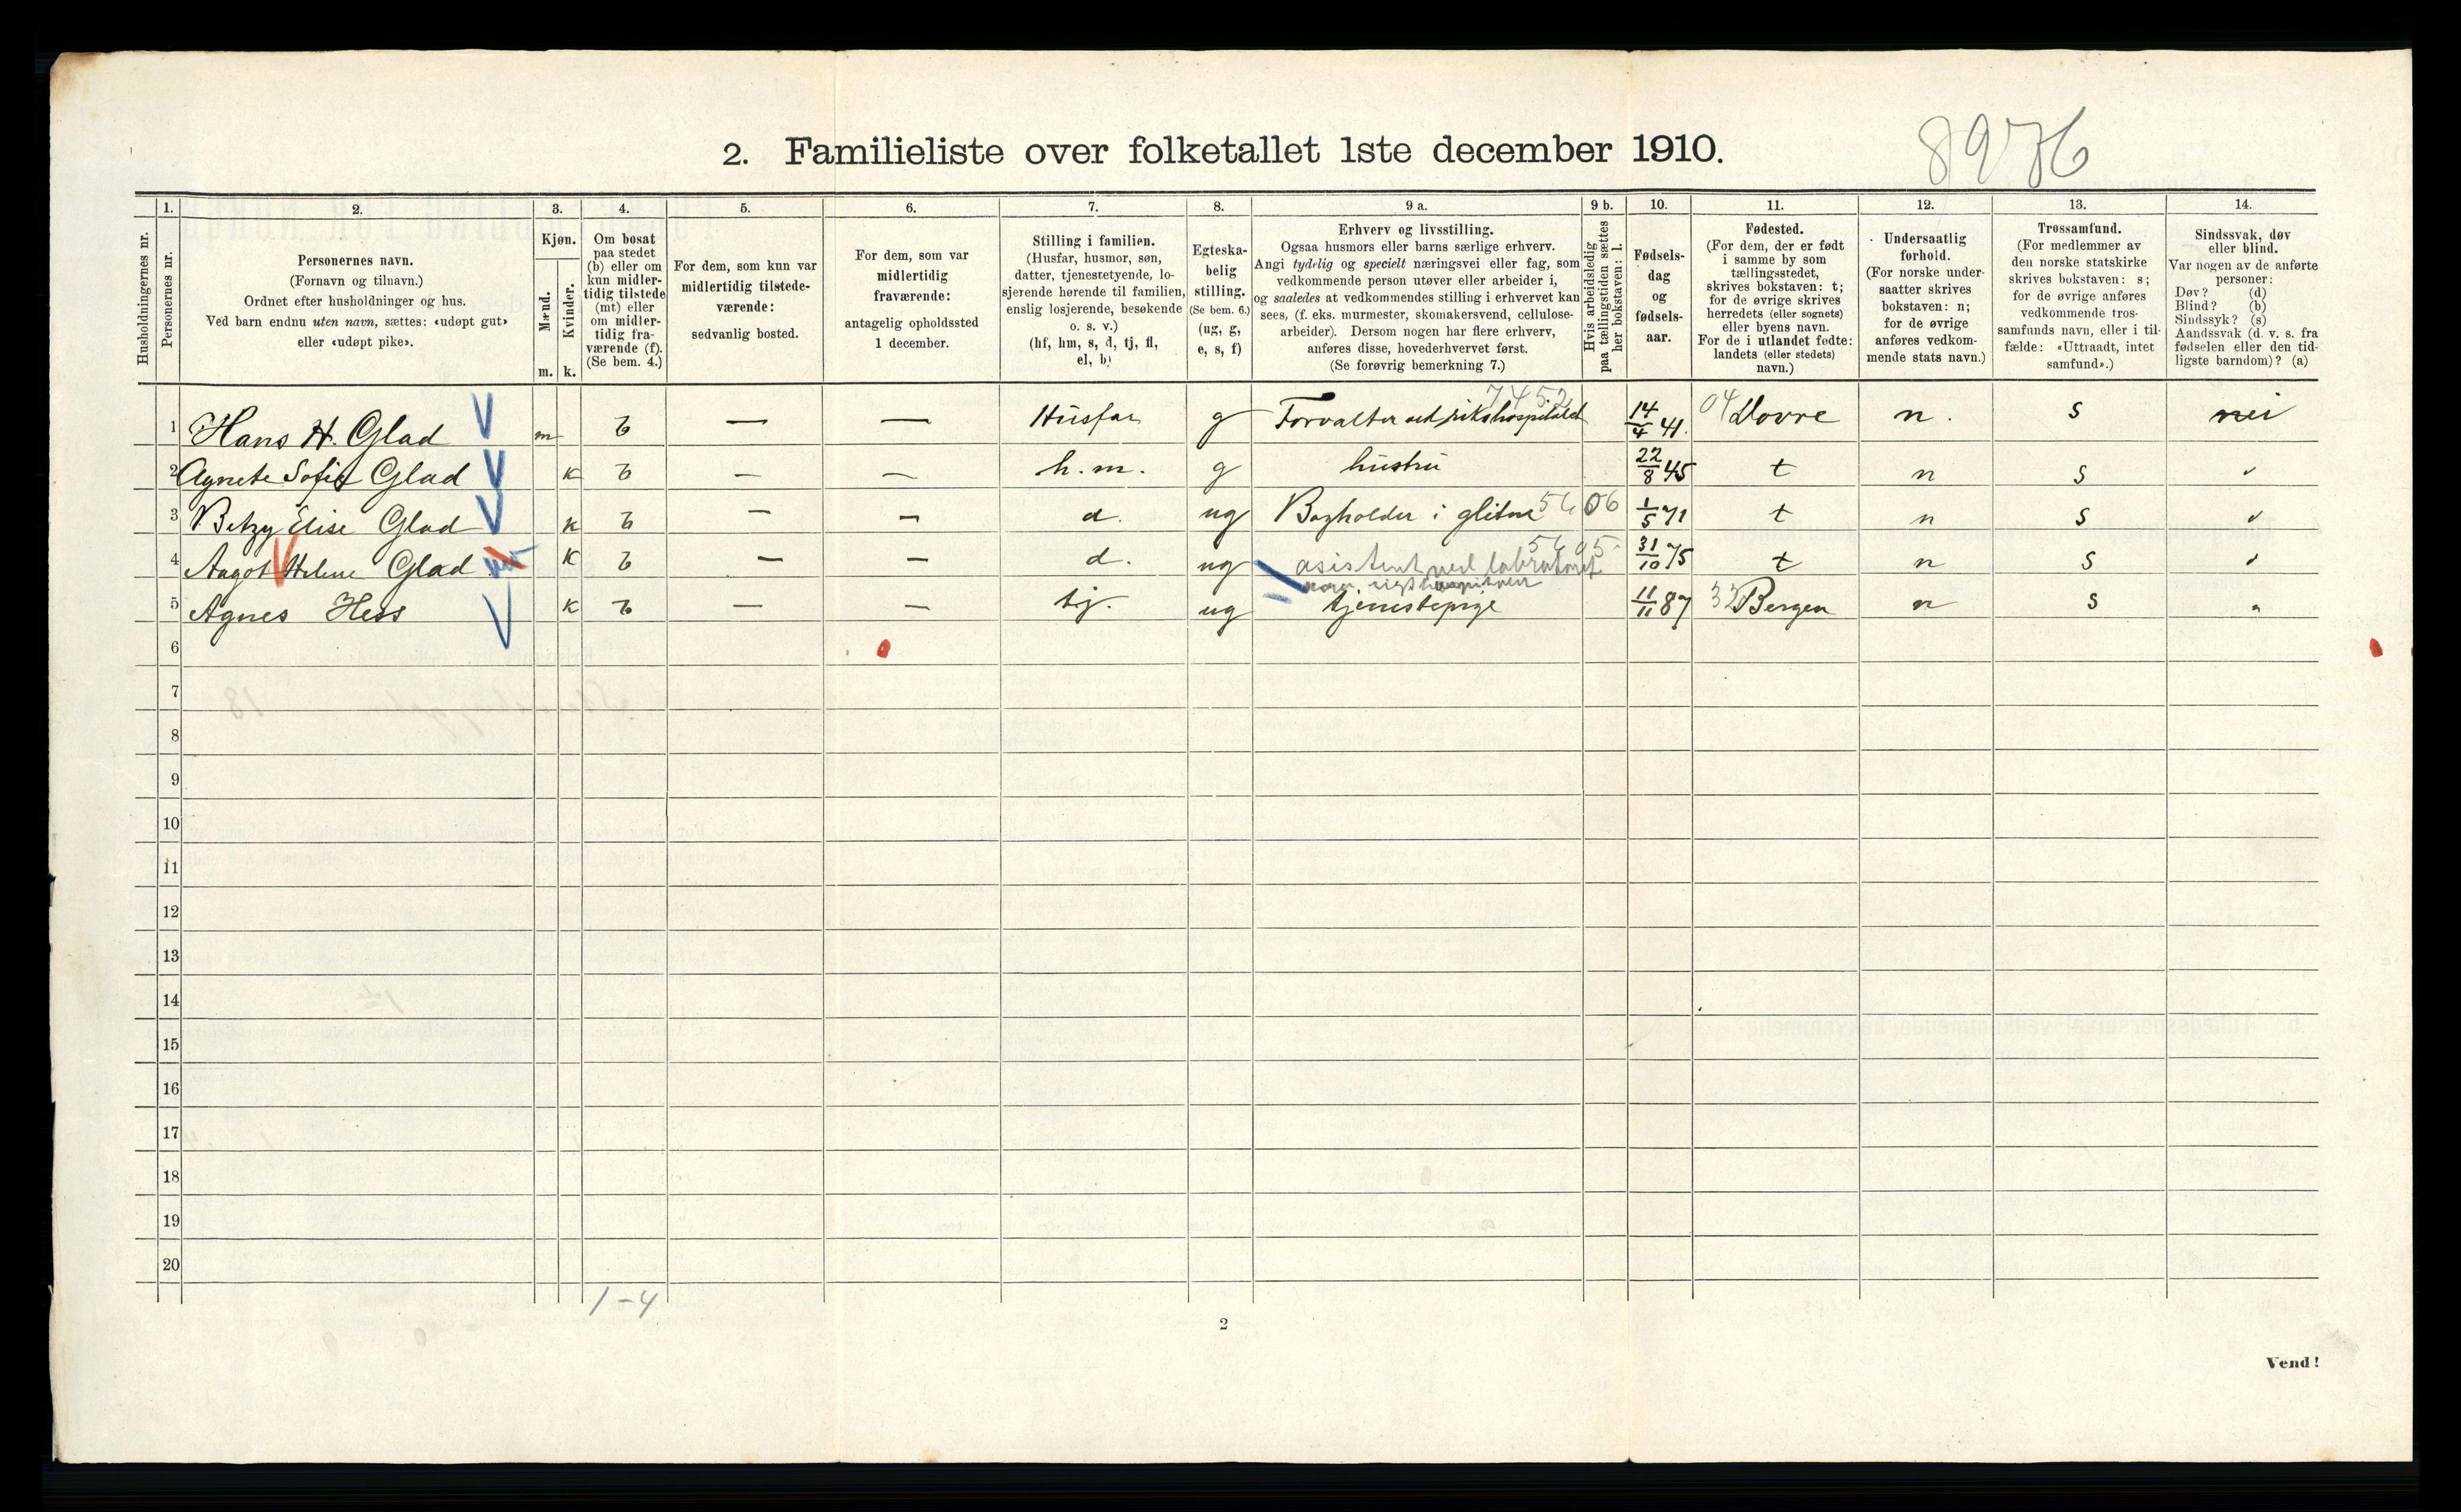 8976
2. Familieliste over folketallet 1ste december 1910.
Husholdningernes nr.
1. Personernes nr.
2. Personernes navn. (Fornavn og tilnavn.) Ordnet efter husholdninger og hus. Ved barn endnu uten navn, sættes: «udøpt gut» eller «udøpt pike».
3. Kjøn. Mænd. m. Kvinder. k.
4. Om bosat paa stedet (b) eller om kun midler-tidig tilstede (mt) eller om midler-tidig fra-værende (f). (Se bem. 4.)
5. For dem, som kun var midlertidig tilstede-værende: sedvanlig bosted.
6. For dem, som var midlertidig fraværende: antagelig opholdssted 1 december.
7. Stilling i familien. (Husfar, husmor, søn, datter, tjenestetyende, lo-sjerende hørende til familien, enslig losjerende, besøkende o. s. v.) (hf, hm, s, d, tj, fl, el, b)
8. Egteska-belig stilling. (Se bem. 6.) (ug, g, e, s, f)
9 a. Erhverv og livsstilling. Ogsaa husmors eller barns særlige erhverv. Angi tydelig og specielt næringsvei eller fag, som vedkommende person utøver eller arbeider i, og saaledes at vedkommendes stilling i erhvervet kan sees, (f. eks. murmester, skomakersvend, cellulose-arbeider). Dersom nogen har flere erhverv, anføres disse, hovederhvervet først. (Se forøvrig bemerkning 7.)
9 b. Hvis arbeidsledig paa tællingstiden sættes her bokstaven: l.
10. Fødsels-dag og fødsels-aar.
11. Fødested. (For dem, der er født i samme by som tællingsstedet, skrives bokstaven: t; for de øvrige skrives herredets (eller sognets) eller byens navn. For de i utlandet fødte: landets (eller stedets) navn.)
12. Undersaatlig forhold. (For norske under-saatter skrives bokstaven: n; for de øvrige anføres vedkom-mende stats navn.)
13. Trossamfund. (For medlemmer av den norske statskirke skrives bokstaven: s; for de øvrige anføres vedkommende tros-samfunds navn, eller i til-fælde: «Uttraadt, intet samfund».)
14. Sindssvak, døv eller blind. Var nogen av de anførte personer: Døv? (d) Blind? (b) Sindssyk? (s) Aandssvak (d. v. s. fra fødselen eller den tid-ligste barndom)? (a)
1 Hans H. Glad m b — — Husfar g Forvalter ved rikshospitalet 7452 14/4 41. 04 Dovre n. s nei
2 Agnete Sofie Glad k b — — h.m. g hustru 22/8 45 t n s
3 Betzy Elise Glad k b — — d. ug Bogholder i glitne 5606 1/5 71 t n s
4 Aagot Helene Glad k b — — d. ug asistent ved labratoriet 5605 31/10 75 t n s
5 Agnes Hess k b — — tj. ug tjenestepige 11/11 87 32 Bergen n s
6
7
8
9
10
11
12
13
14
15
16
17
18
19
20
1-4
2
Vend!